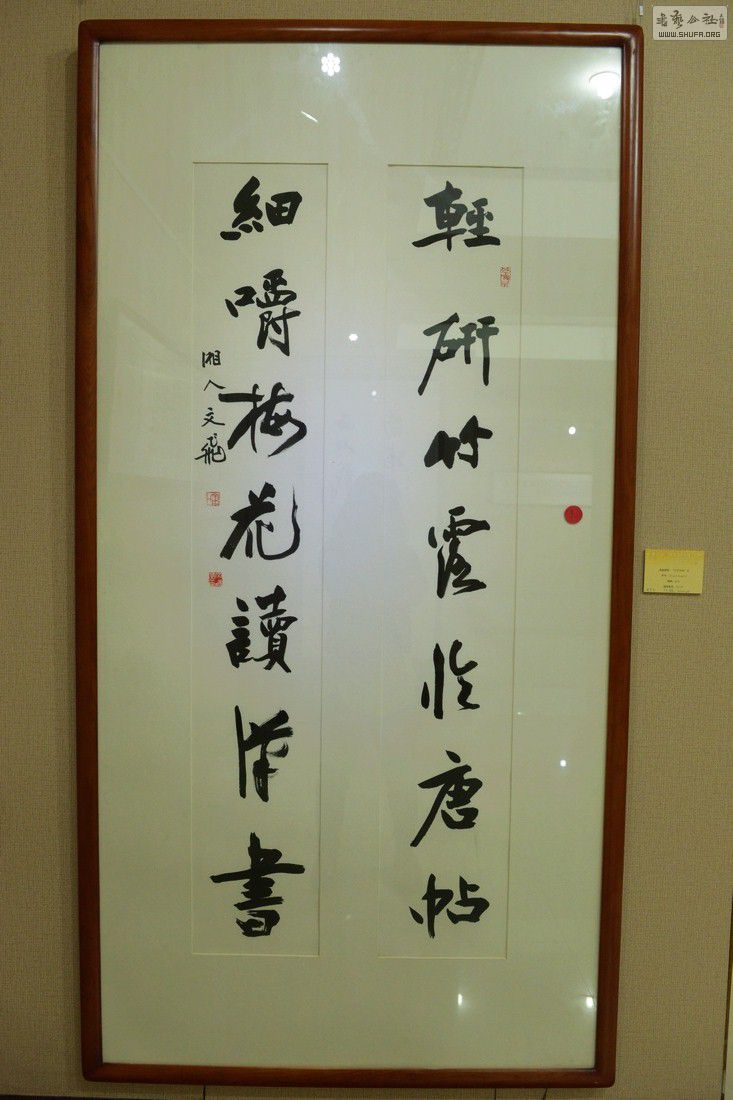 輕研竹露臨唐帖
細嚼梅花讀漢書
湘人文飛
書藝公社
WWW.SHUFA.ORG